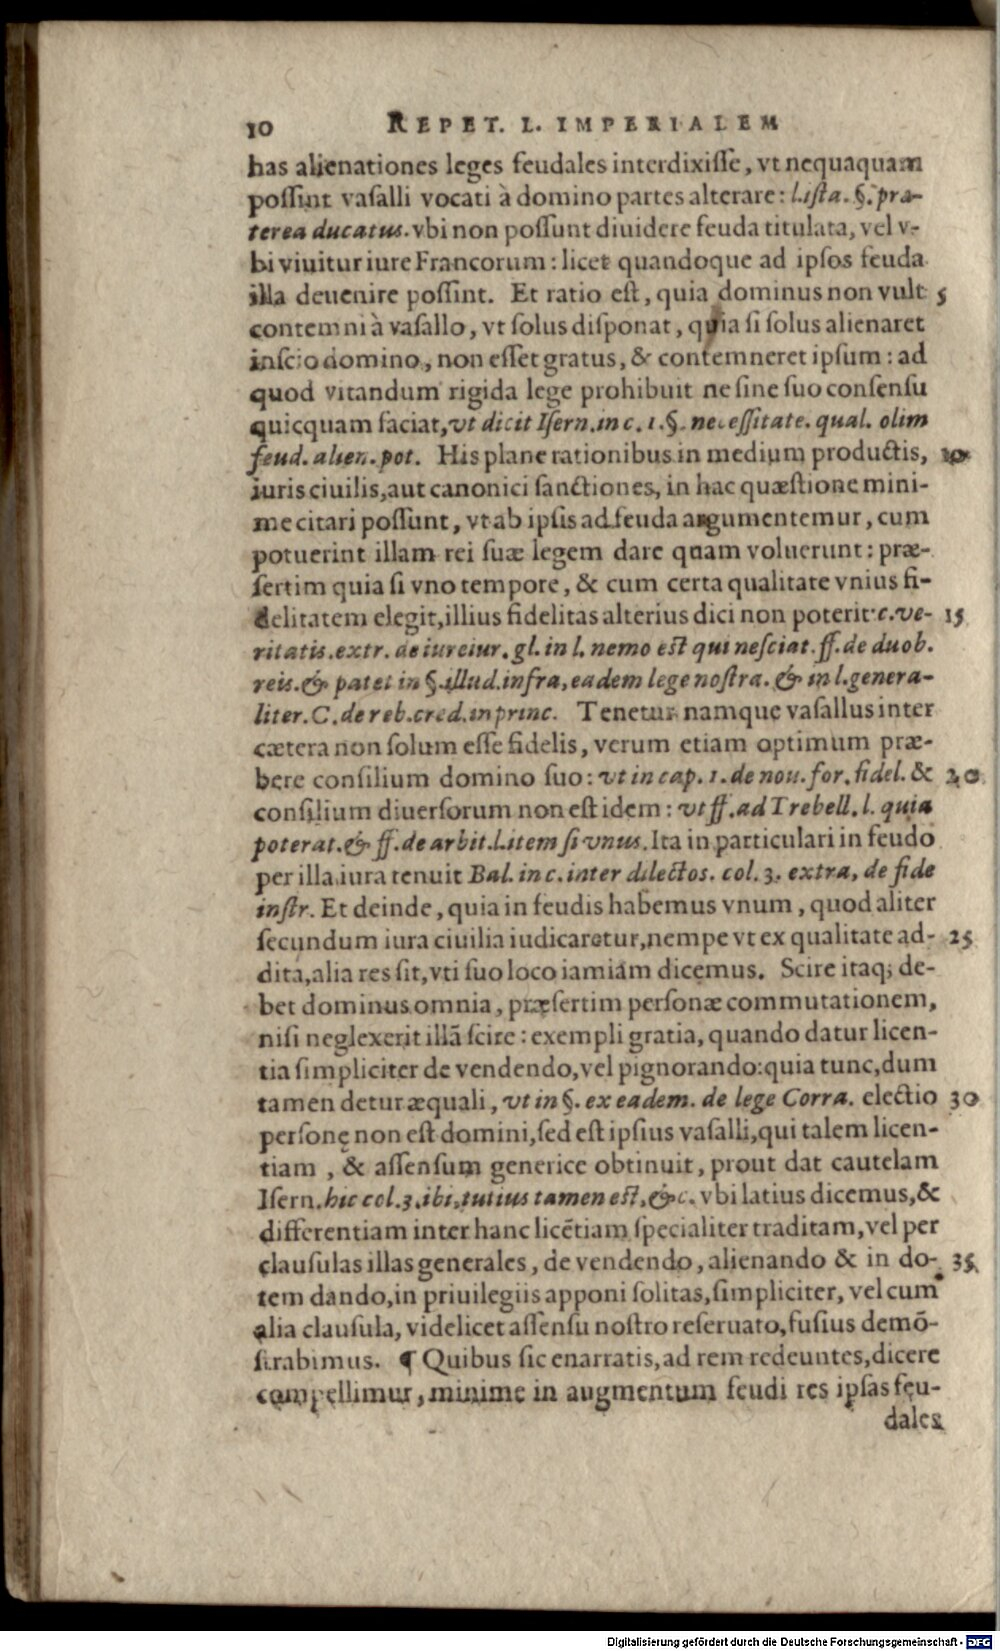 10 REPET. L. IMPERIALEM
has alienationes leges feudales interdixiſſe, vt nequaquam
poſſint vaſalli vocati à domino partes alterare: l. iſta. §. præ-
terea ducatus. vbi non poſſunt diuidere feuda titulata, vel v-
bi viuitur iure Francorum: licet quandoque ad ipſos feuda
illa deuenire poſſint. Et ratio eſt, quia dominus non vult 5
contemni à vaſallo, vt ſolus diſponat, quia ſi ſolus alienaret
inſcio domino, non eſſet gratus, & contemneret ipſum: ad
quod vitandum rigida lege prohibuit ne ſine ſuo conſenſu
quicquam faciat, vt dicit Iſern. in c. 1. §. neceſſitate. qual. olim
feud. alien. pot. His plane rationibus in medium productis, 10
iuris ciuilis, aut canonici ſanctiones, in hac quæſtione mini-
me citari poſſunt, vt ab ipſis ad feuda argumentemur, cum
potuerint illam rei ſuæ legem dare quam voluerunt: præ-
ſertim quia ſi vno tempore, & cum certa qualitate vnius fi-
delitatem elegit, illius fidelitas alterius dici non poterit: c. ve- 15
ritatis. extr. de iureiur. gl. in l. nemo eſt qui neſciat. ff. de duob.
reis. & patet in §. illud. infra, eadem lege noſtra. & in l. genera-
liter. C. de reb. cred. in princ. Tenetur namque vaſallus inter
cætera non ſolum eſſe fidelis, verum etiam optimum præ-
bere conſilium domino ſuo: vt in cap. 1. de nou. for. fidel. & 20
conſilium diuerſorum non eſt idem: vt ff. ad Trebell. l. quia
poterat. & ff. de arbit. l. item ſi vnus. Ita in particulari in feudo
per illa iura tenuit Bal. in c. inter dilectos. col. 3. extra, de fide
inſtr. Et deinde, quia in feudis habemus vnum, quod aliter
ſecundum iura ciuilia iudicaretur, nempe vt ex qualitate ad- 25
dita, alia res ſit, vti ſuo loco iamiam dicemus. Scire itaq; de-
bet dominus omnia, præſertim perſonæ commutationem,
niſi neglexerit illã ſcire: exempli gratia, quando datur licen-
tia ſimpliciter de vendendo, vel pignorando: quia tunc, dum
tamen detur æquali, vt in §. ex eadem. de lege Corra. electio 30
perſonę non eſt domini, ſed eſt ipſius vaſalli, qui talem licen-
tiam, & aſſenſum generice obtinuit, prout dat cautelam
Iſern. hic col. 3. ibi, tutius tamen eſt, &c. vbi latius dicemus, &
differentiam inter hanc licẽtiam ſpecialiter traditam, vel per
clauſulas illas generales, de vendendo, alienando & in do- 35
tem dando, in priuilegiis apponi ſolitas, ſimpliciter, vel cum
alia clauſula, videlicet aſſenſu noſtro reſeruato, fuſius demõ-
ſtrabimus. ¶ Quibus ſic enarratis, ad rem redeuntes, dicere
compellimur, minime in augmentum feudi res ipſas feu-
dales
Digitalisierung gefördert durch die Deutsche Forschungsgemeinschaft - DFG